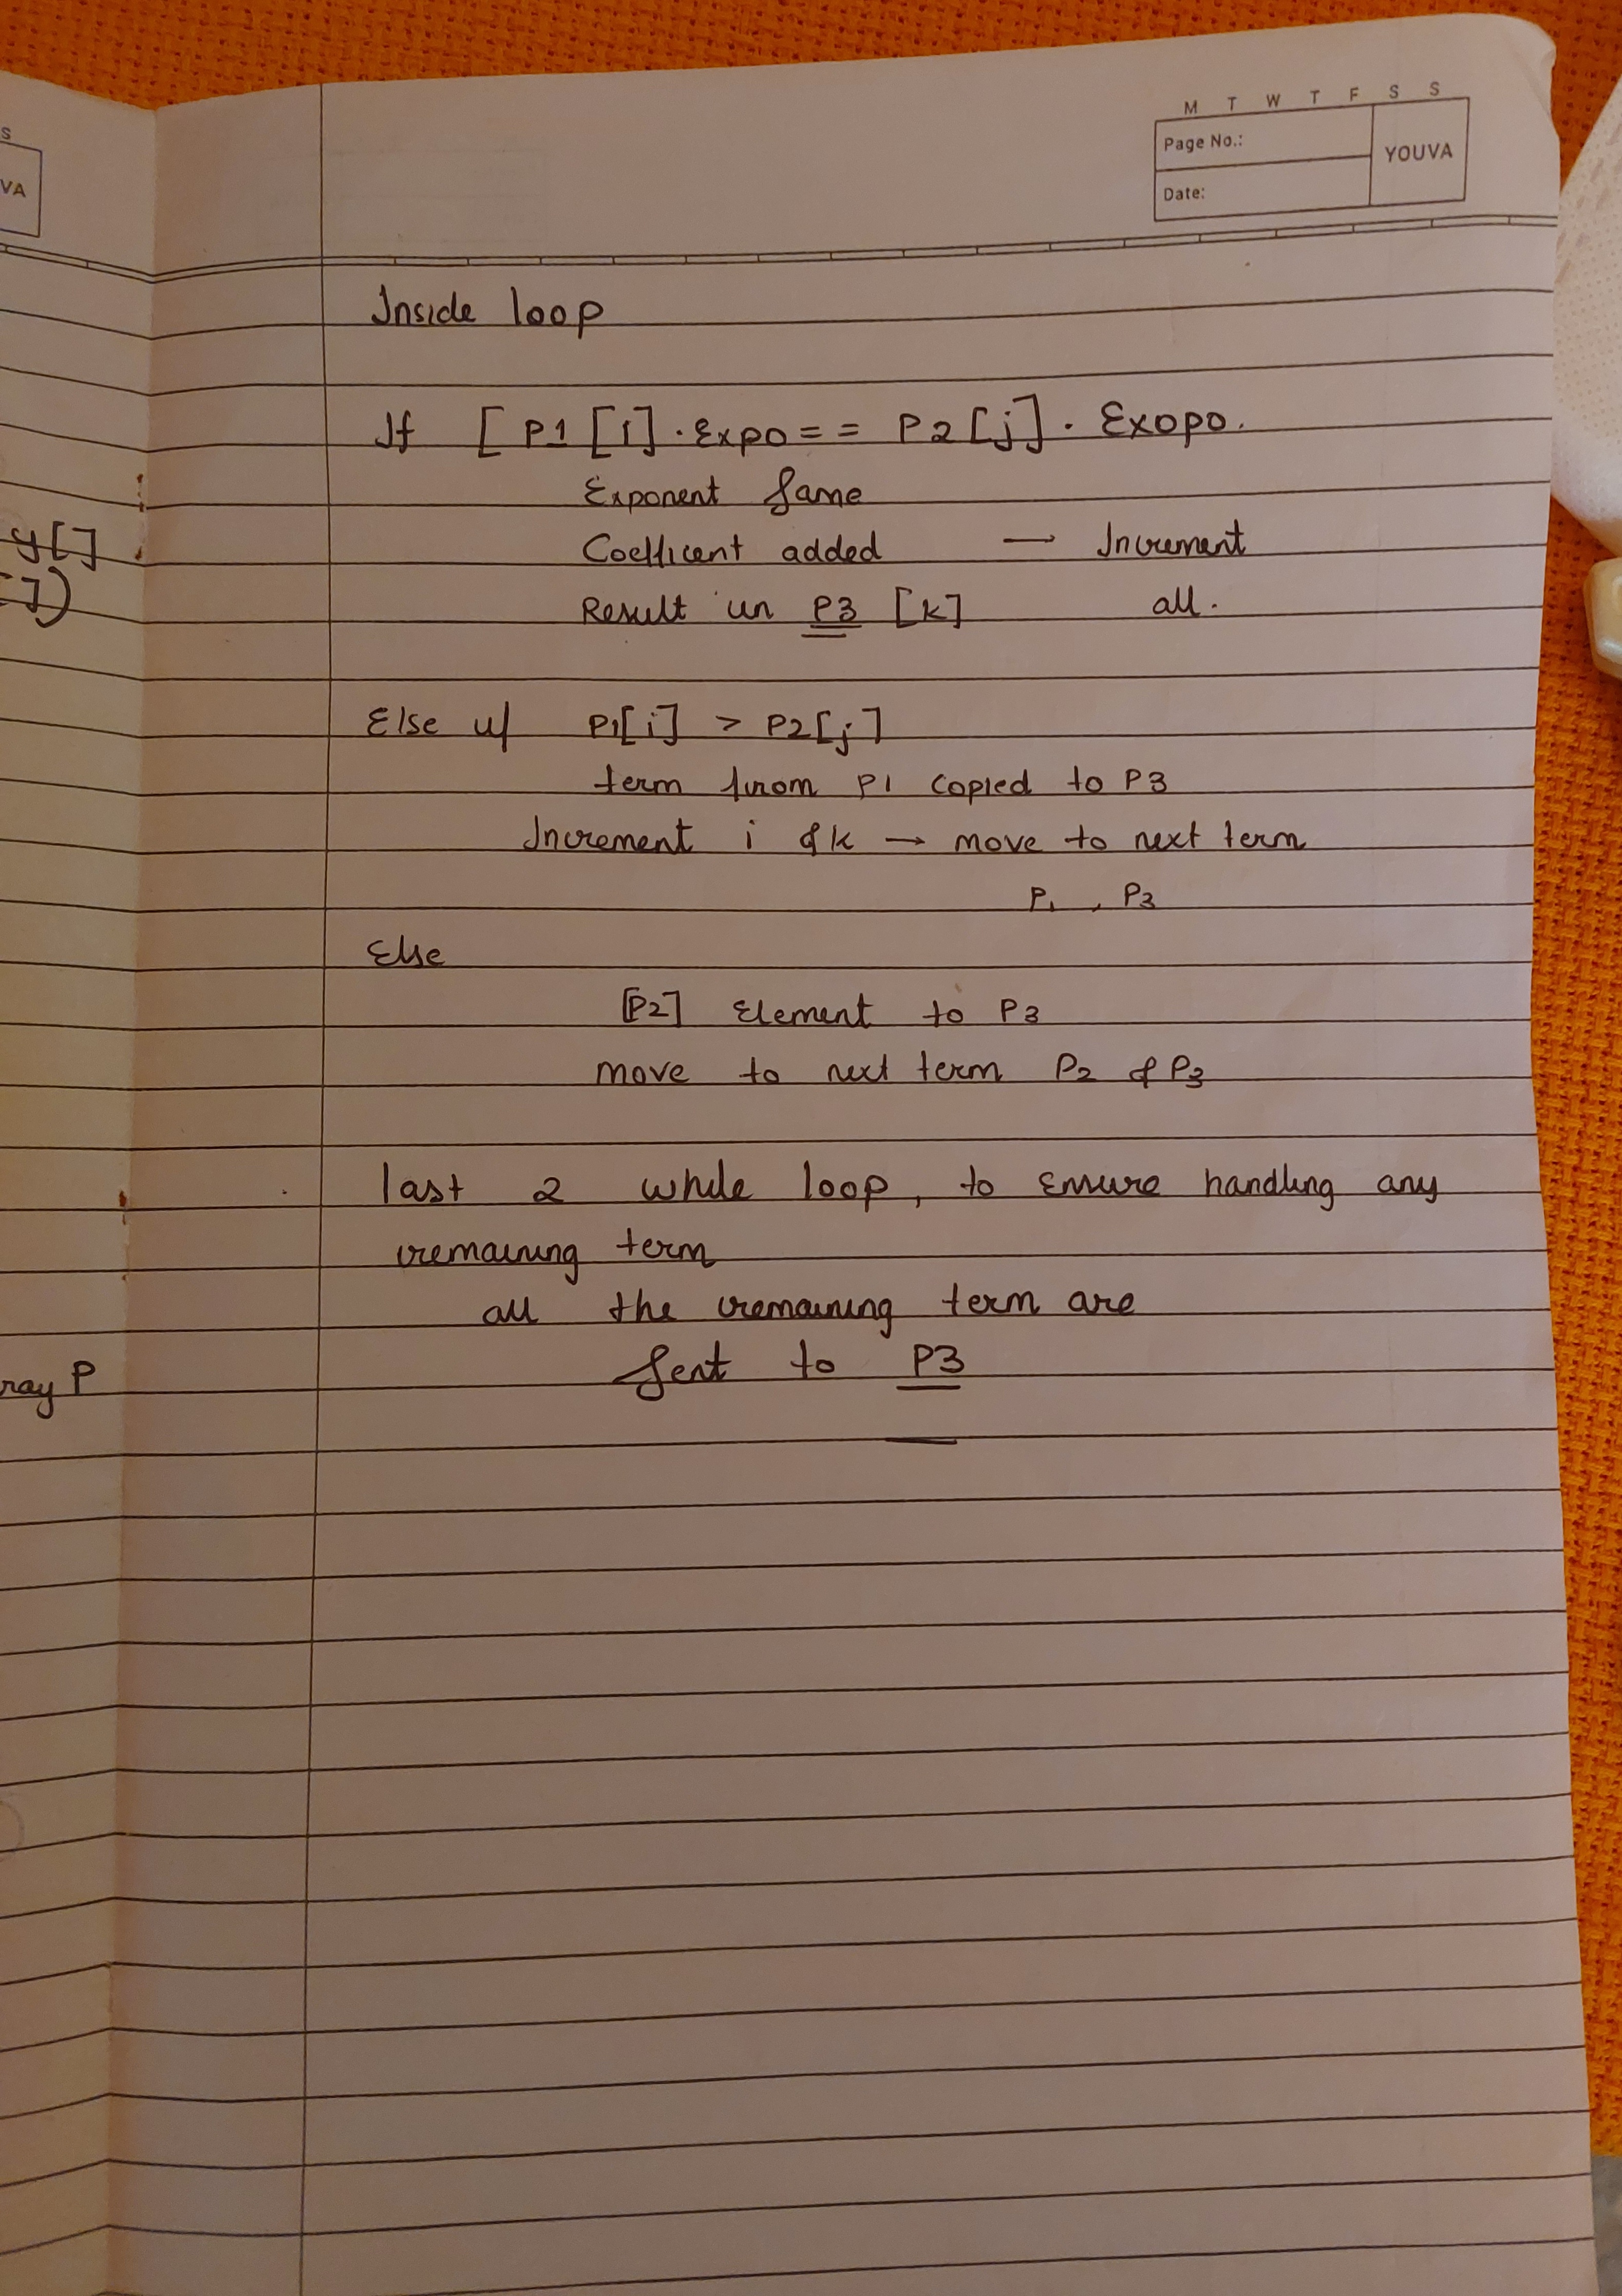 S
VA
y[]
:])
ray P
M T W T F S S
Page No.:
YOUVA
Date:
Inside loop
If [ P1 [i] . Expo = = P2 [j] . Exopo.
Exponent Same
Coefficent added — Increment
Result in P3 [k] all.
Else if P1[i] > P2[j]
term from P1 copied to P3
Increment i & k → move to next term
P1 , P3
Else
[P2] Element to P3
move to next term P2 & P3
last 2 while loop, to Ensure handling any
remaining term
all the remaining term are
Sent to P3